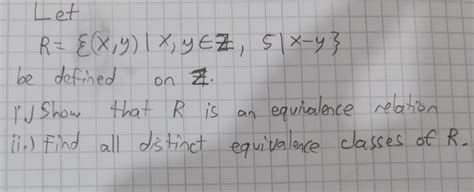 Let
R = {(x,y) | x, y ∈ Z, 5 | x-y}
be defined on Z.
i.) Show that R is an equivalence relation
ii.) Find all distinct equivalence classes of R.